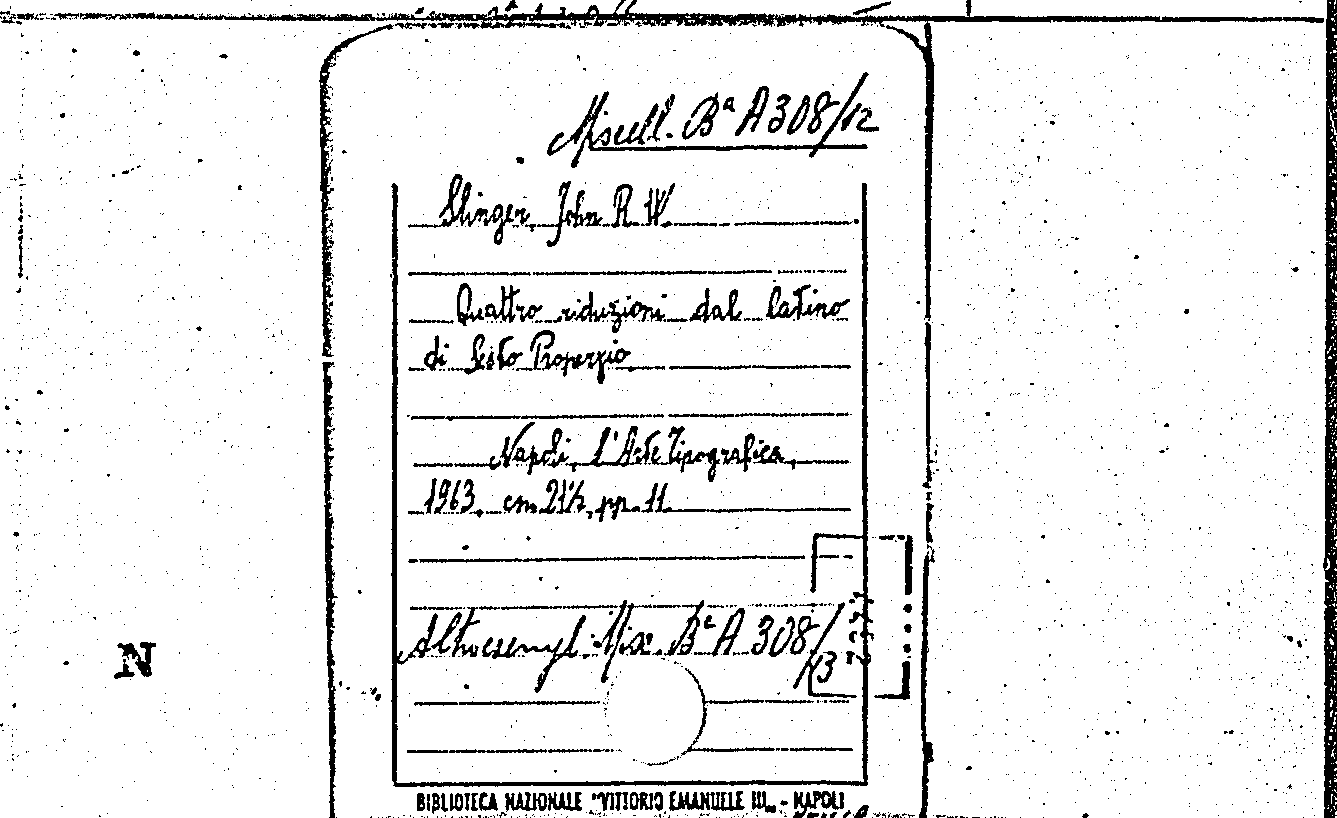 Miscell. Bª A 308/12
Slinger, John R. W.
Quattro riduzioni dal latino
di Sesto Properzio
Napoli, l'Arte Tipografica,
1963, cm. 21½, pp. 11.
Misc. Bª A 308/
13
N
BIBLIOTECA NAZIONALE "VITTORIO EMANUELE III" - NAPOLI